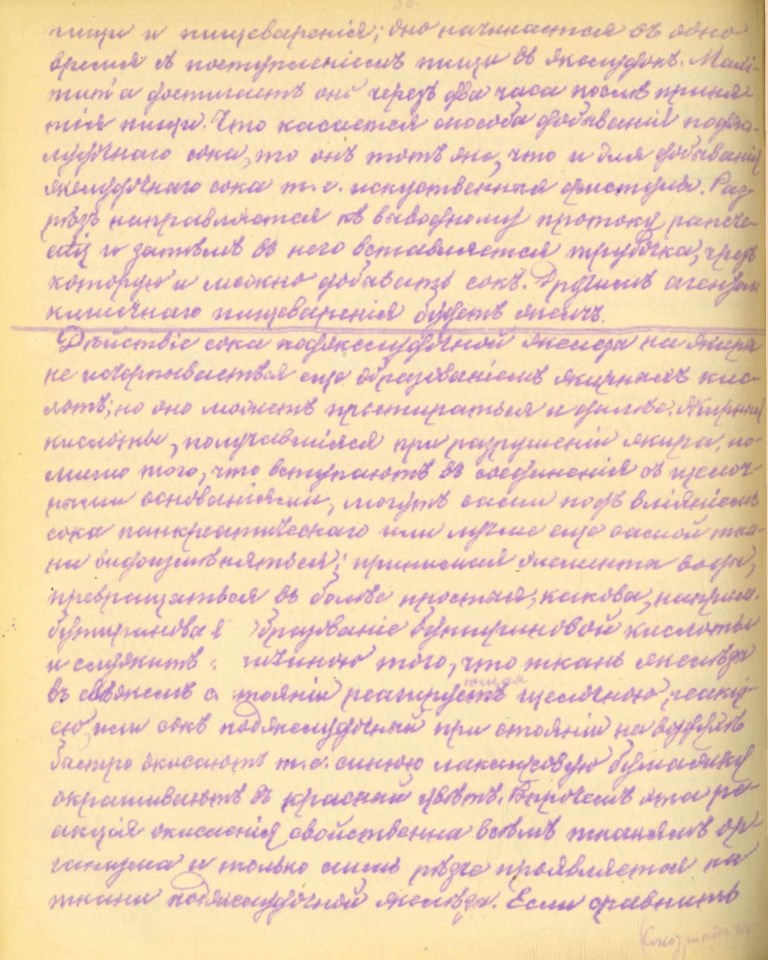 пищи и пищеваренія; оно начинается въ одно
время съ поступленіемъ пищи въ желудокъ. Макси-
достигаетъ оно черезъ два часа послѣ приня-
тія пищи. Что касается способа добыванія подже-
лудочнаго сока, то онъ тотъ же, что и для добыванія
желудочнаго сока т. е. искуственныя фистулы. Раз-
рѣзъ направляется къ выводному протоку
и затѣмъ въ него вставляется трубочка, чрезъ
которую и можно добывать сокъ. Другимъ агентомъ
кишечнаго пищеваренія будетъ желчь.
Дѣйствіе сока поджелудочной железы на жиры
не исчерпывается еще образованіемъ жирныхъ кис-
лотъ; но оно можетъ простираться и далѣе. Жирныя
кислоты, получавшіяся при разрушеніи жира, по-
мимо того, что вступаютъ въ соединенія съ щелоч-
ными основаніями, могутъ сами подъ вліяніемъ
сока панкреатическаго или лучше еще самой тка-
ни видоизмѣняться; принимая элементы воды,
превращаться въ болѣе простыя, какова, наприм.
бутириновая образованіе бутириновой кислоты
и служитъ причиною того, что ткань железы
въ свѣжемъ состояніи реагирующая щелочною реакці-
ею, или сокъ поджелудочный при стояніи на воздухѣ
быстро окисаютъ т. е. синюю лакмусовую бумажку
окрашиваютъ въ красный цвѣтъ. Впрочемъ эта ре-
акція окисанія свойственна всѣмъ тканямъ ор-
ганизма и только лишь рѣзче проявляется на
ткани поджелудочной железы. Если сравнить